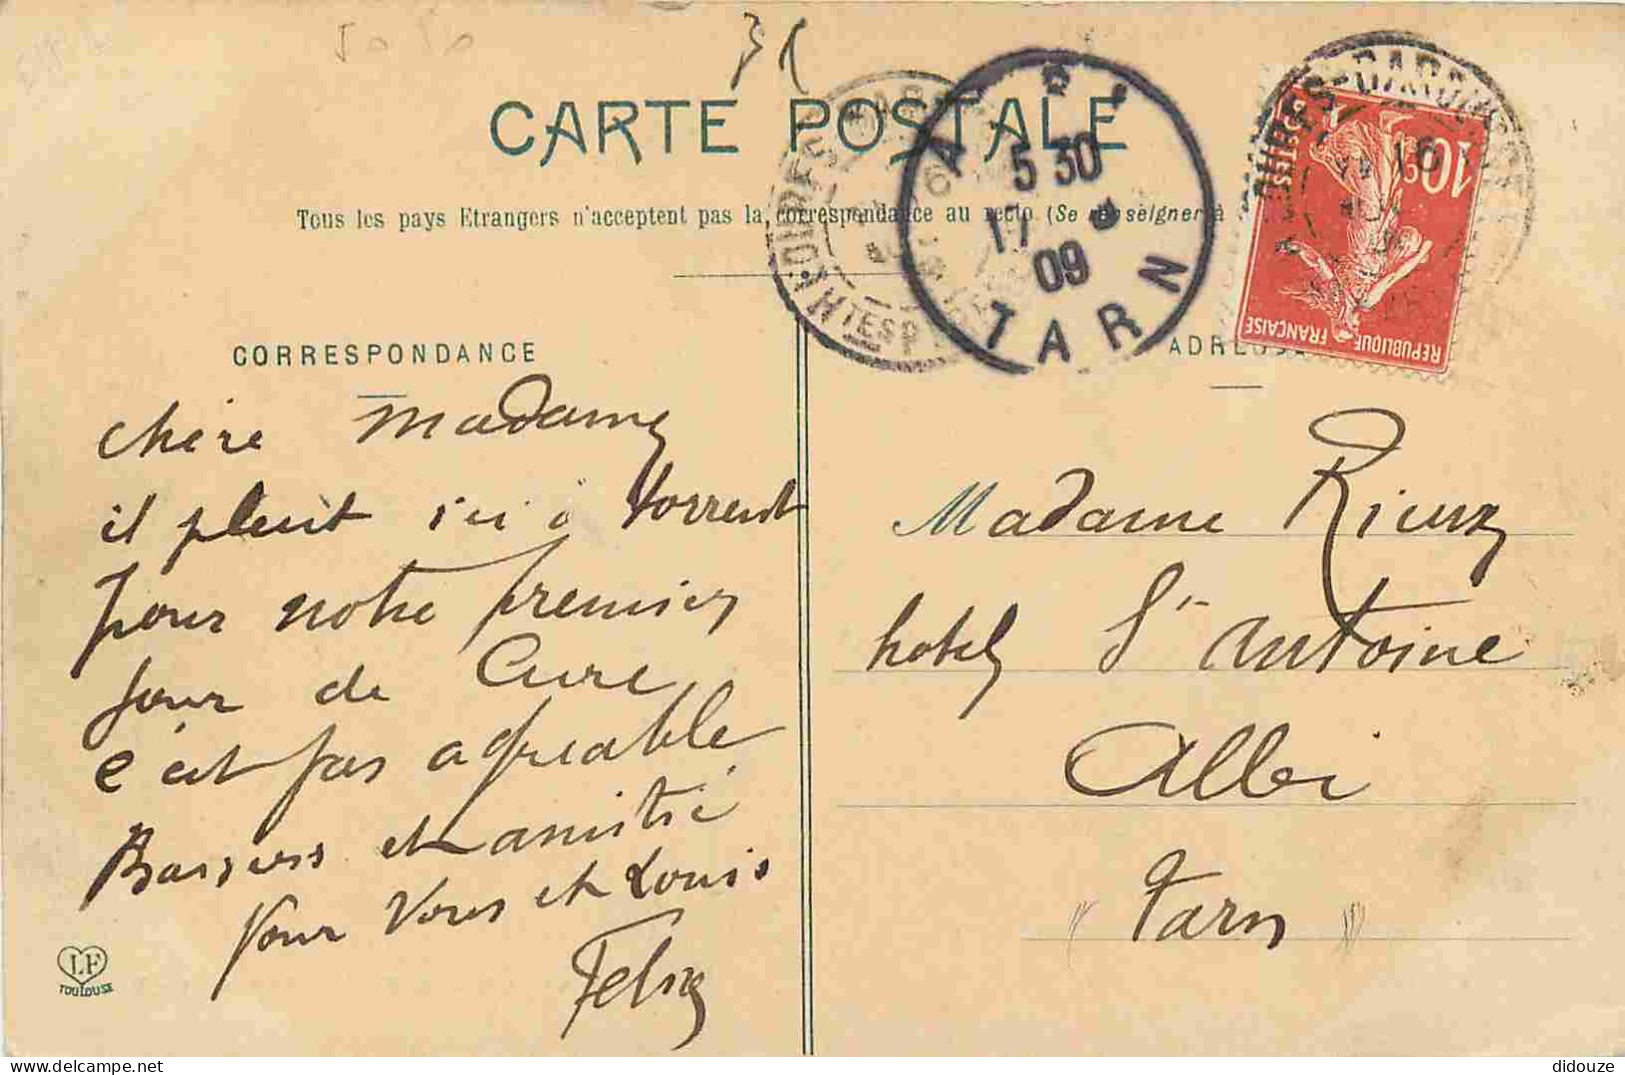 CARTE POSTALE
Tous les pays Etrangers n'acceptent pas la correspondance au recto (Se renseigner à
CORRESPONDANCE
chère Madame
il pleut ici à torrent
pour notre premier
jour de Cure
c'est pas agréable
Baisers et amitié
pour vous et Louis
Felix
LF
TOULOUSE
ALBI
5 30
17
09
TARN
10c
POSTES
REPUBLIQUE FRANÇAISE
Madame Rieux
hotel St Antoine
Albi
Tarn
didouze